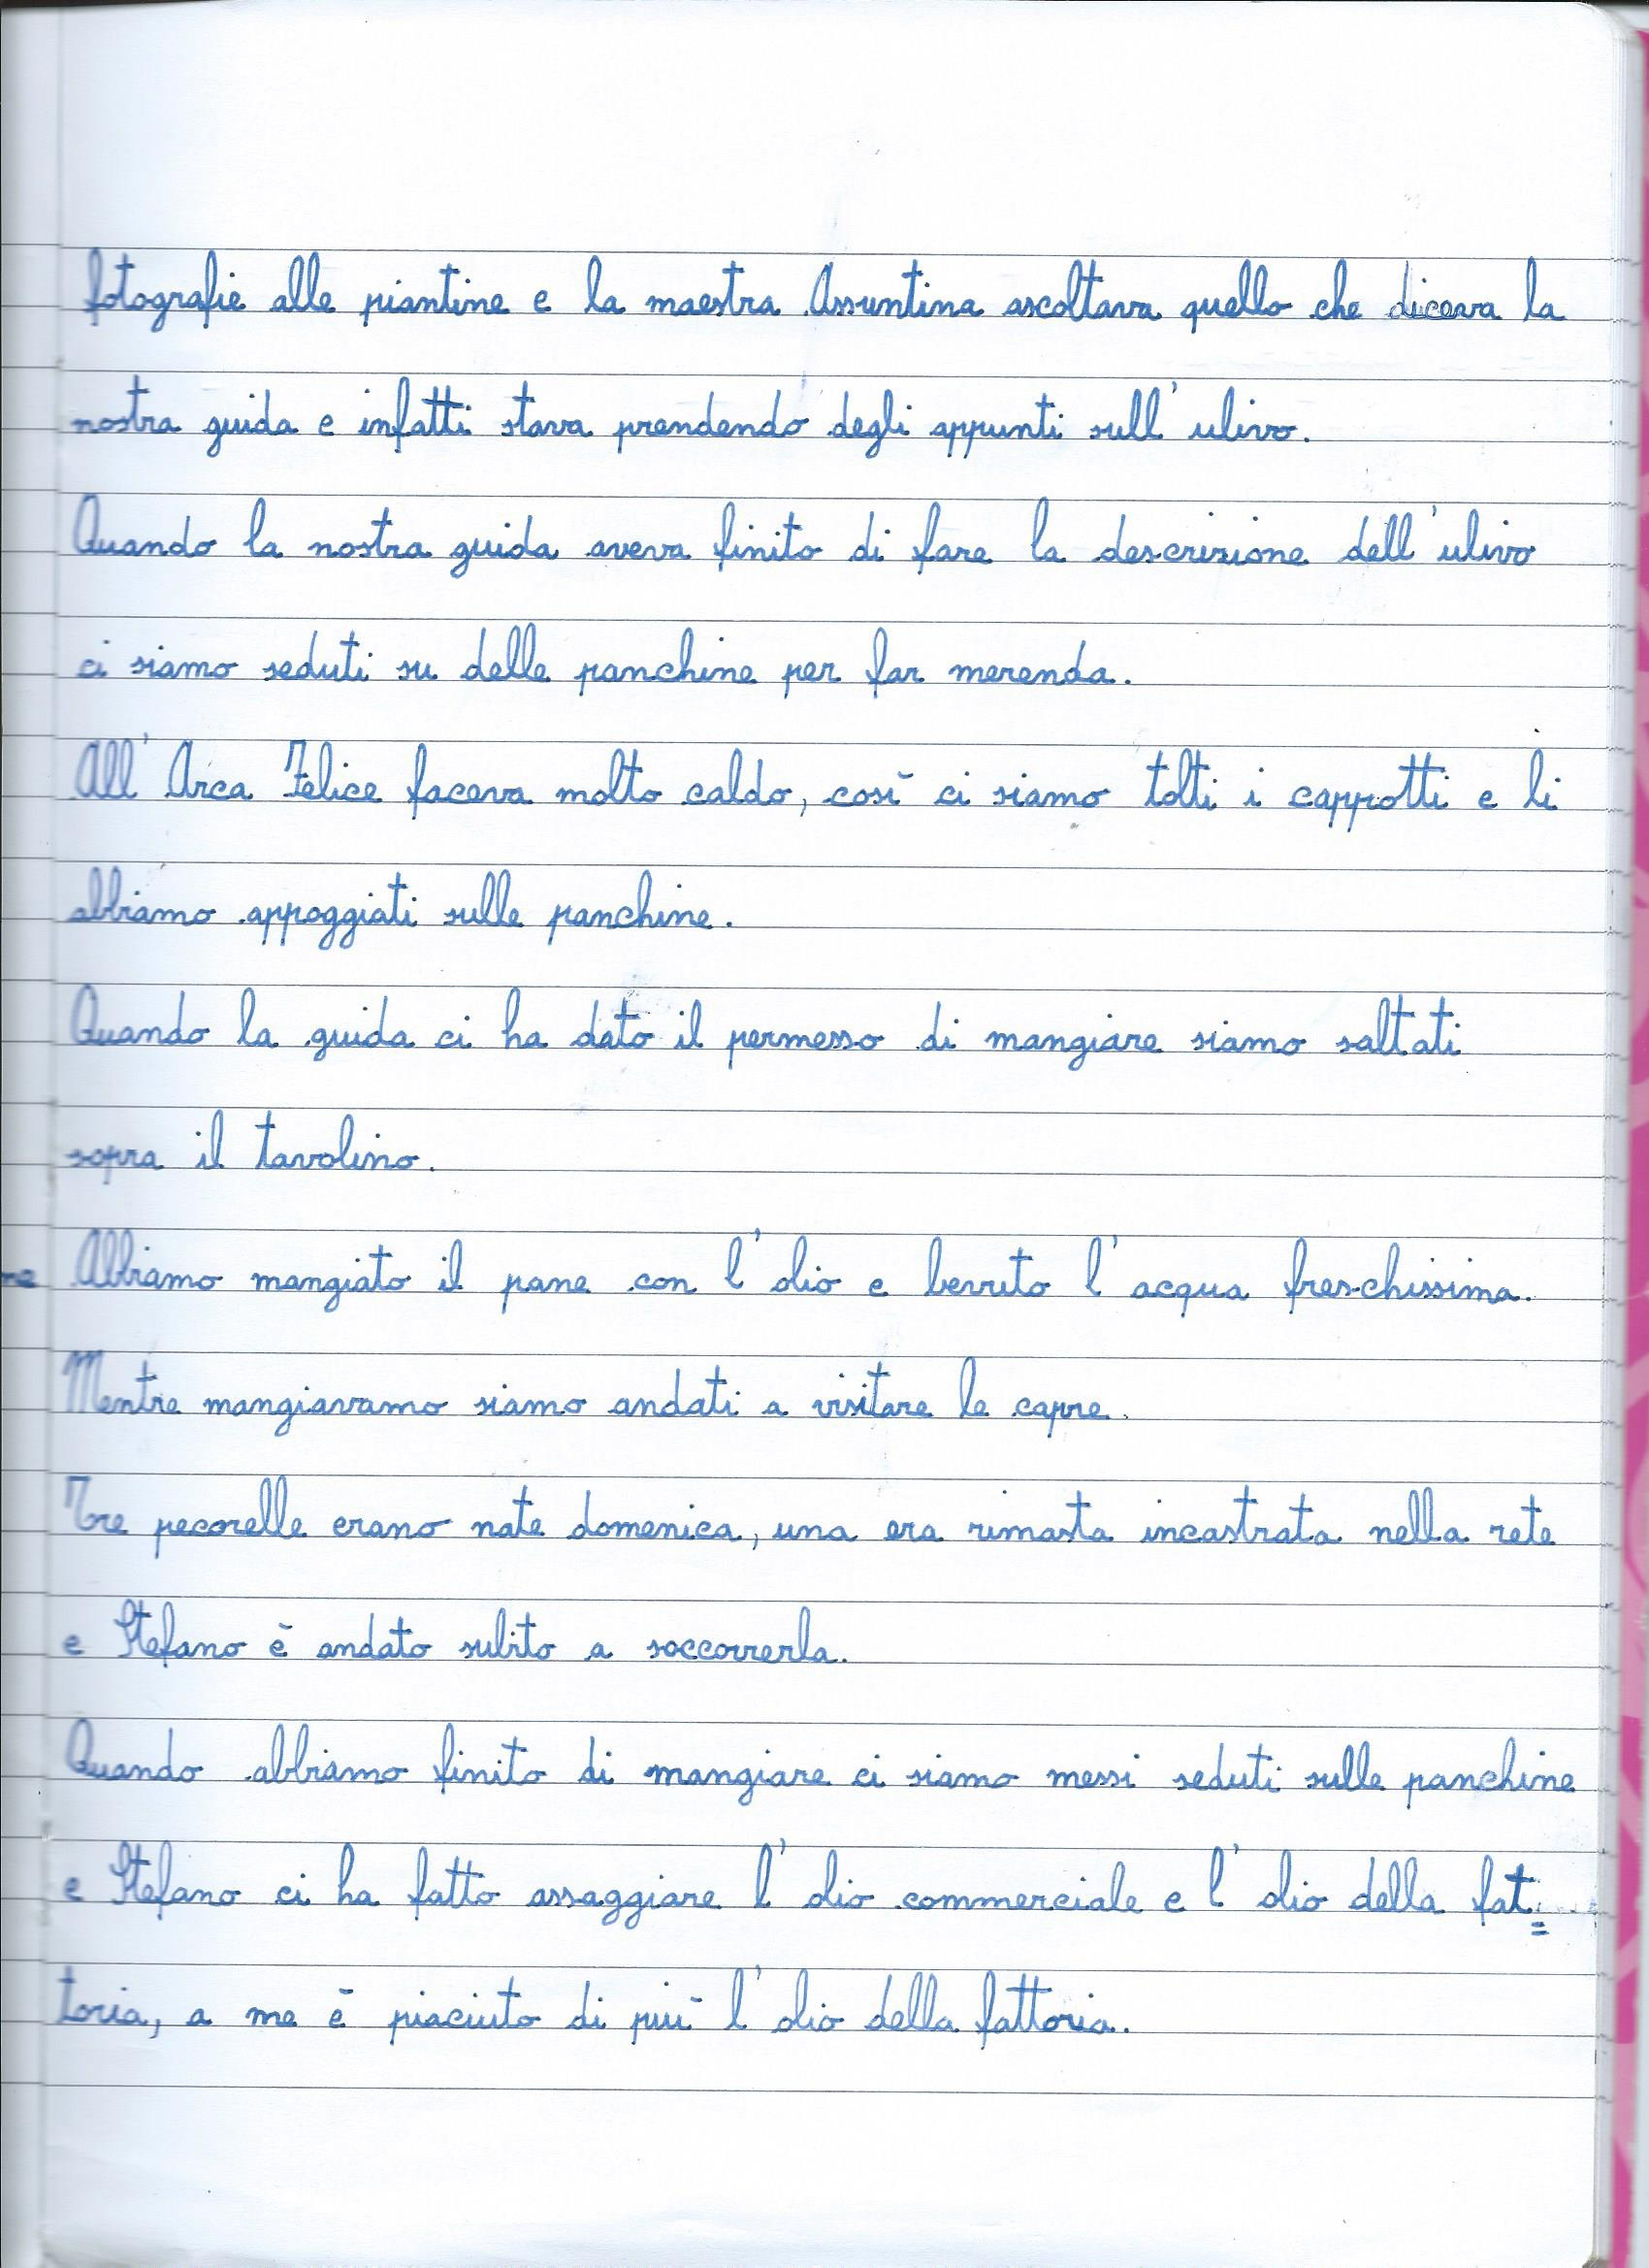 fotografie alle piantine e la maestra Assuntina ascoltava quello che diceva la
nostra guida e infatti stava prendendo degli appunti sull'ulivo.
Quando la nostra guida aveva finito di fare la descrizione dell'ulivo
ci siamo seduti su delle panchine per far merenda.
All'Arca Felice faceva molto caldo, così ci siamo tolti i cappotti e li
abbiamo appoggiati sulle panchine.
Quando la guida ci ha dato il permesso di mangiare siamo saltati
sopra il tavolino.
Abbiamo mangiato il pane con l'olio e bevuto l'acqua freschissima.
Mentre mangiavamo siamo andati a visitare le capre.
Tre pecorelle erano nate domenica, una era rimasta incastrata nella rete
e Stefano è andato subito a soccorrerla.
Quando abbiamo finito di mangiare ci siamo messi seduti sulle panchine
e Stefano ci ha fatto assaggiare l'olio commerciale e l'olio della fat=
toria, a me è piaciuto di più l'olio della fattoria.